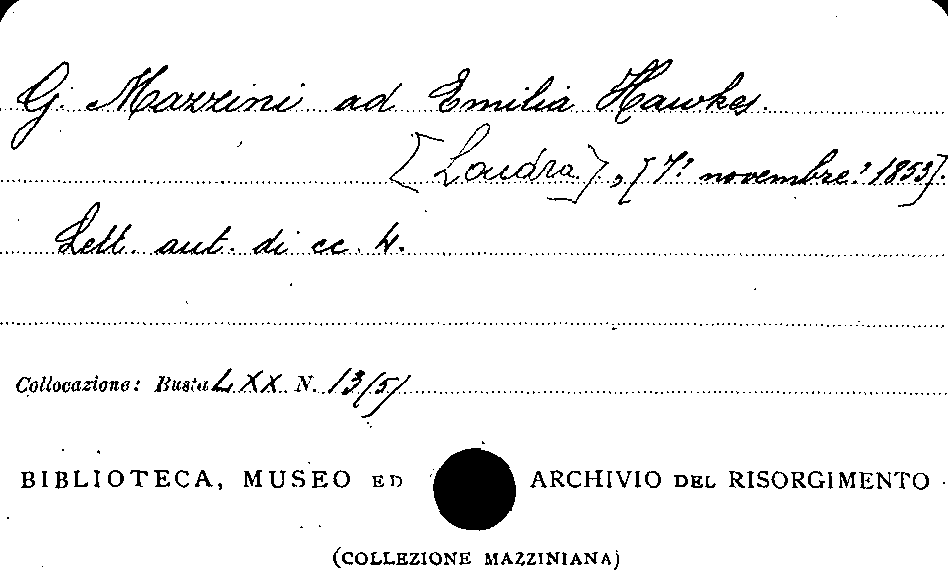 G. Mazzini ad Emilia Hawkes.
[Londra], [7? novembre? 1853].
Lett. aut. di cc. 4.
Collocazione: Busta LXX N. 13(5)
BIBLIOTECA, MUSEO ED ARCHIVIO DEL RISORGIMENTO
(COLLEZIONE MAZZINIANA)